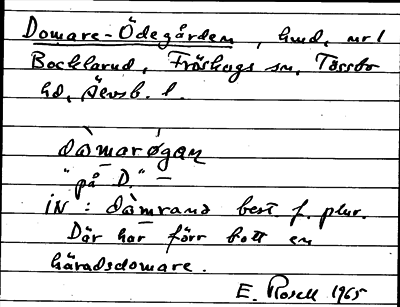 Domare-Ödegården, hmd, nr 1
Bocklarud, Fröskogs sn, Tössbo
hd, Älvsb. l.
dòmarøgan
"på D." –
iN: dòmrana best f. plur.
Där har förr bott en
häradsdomare.
E. Rosell 1965